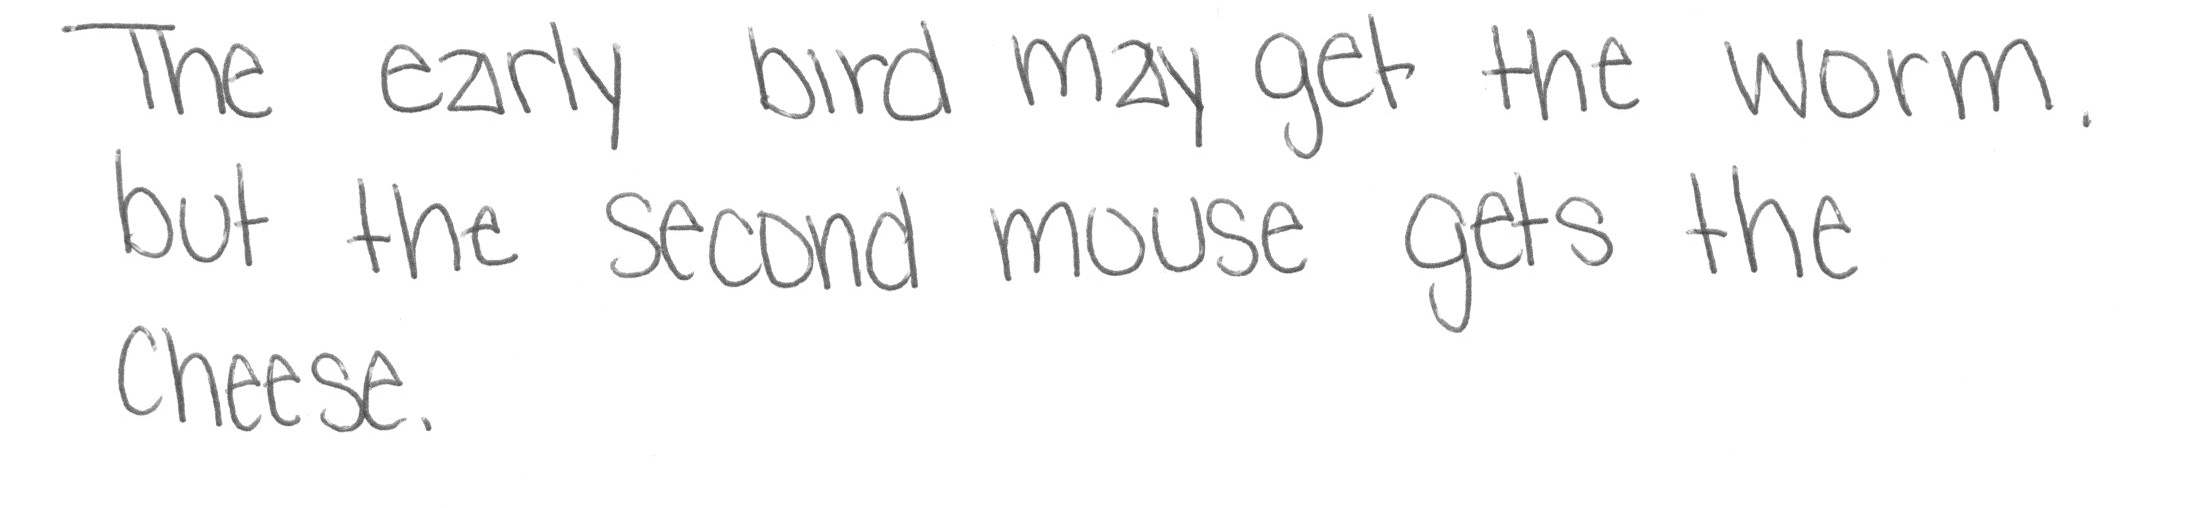 The early bird may get the worm.
but the second mouse gets the
Cheese.